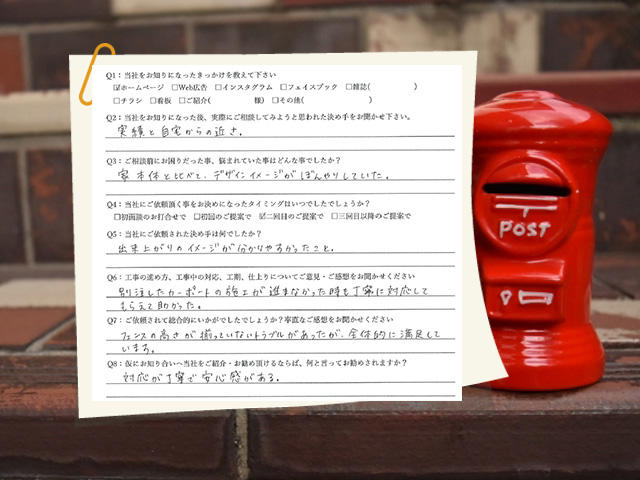 Q1：当社をお知りになったきっかけを教えて下さい
☑ホームページ　□Web広告　□インスタグラム　□フェイスブック　□雑誌(　　　　　)
□チラシ　□看板　□ご紹介(　　　　　様)　□その他(　　　　　　　)
Q2：当社をお知りになった後、実際にご相談してみようと思われた決め手をお聞かせ下さい。
実績と自宅からの近さ。
Q3：ご相談前にお困りだった事、悩まれていた事はどんな事でしたか？
家本体と比べて、デザインイメージがぼんやりしていた。
Q4：当社にご依頼頂く事をお決めになったタイミングはいつでしたでしょうか？
□初面談のお打合せで　□初回のご提案で　☑二回目のご提案で　□三回目以降のご提案で
Q5：当社にご依頼された決め手は何でしたか？
出来上がりのイメージが分かりやすかったこと。
Q6：工事の進め方、工事中の対応、工期、仕上りについてご意見・ご感想をお聞かせください
別注したカーポートの施工が進まなかった時も丁寧に対応して
もらえて助かった。
Q7：ご依頼されて総合的にいかがでしたでしょうか？率直なご感想をお聞かせください
フェンスの高さが揃っていないトラブルがあったが、全体的に満足して
います。
Q8：仮にお知り合いへ当社をご紹介・お勧め頂けるならば、何と言ってお勧めされますか？
対応が丁寧で安心感がある。
POST